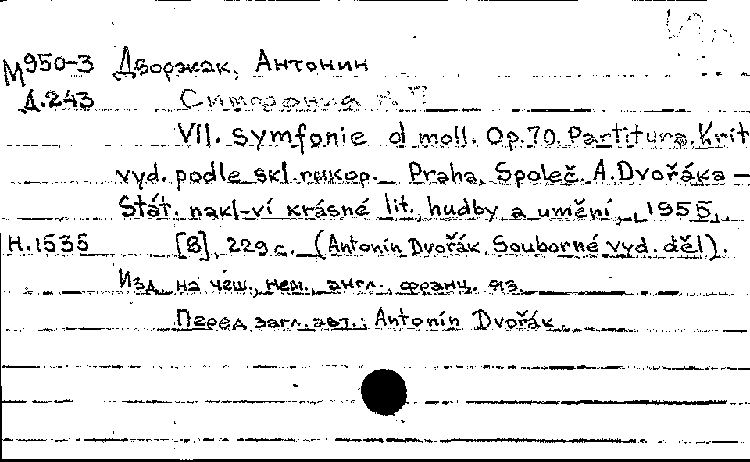 М950-3 Дворжак, Антонин
Д.243 Симфония № 7
VII. Symfonie d moll. Op.70. Partitura. Krit.
vyd. podle skl. rukop. Praha, Společ. A.Dvořáka —
Stát. nakl-ví krásné lit., hudby a umění, 1955.
Н.1535 [8], 229 с. (Antonín Dvořák. Souborné vyd. děl).
Изд. на чеш., нем., англ., франц. яз.
Перед загл. авт.: Antonín Dvořák.